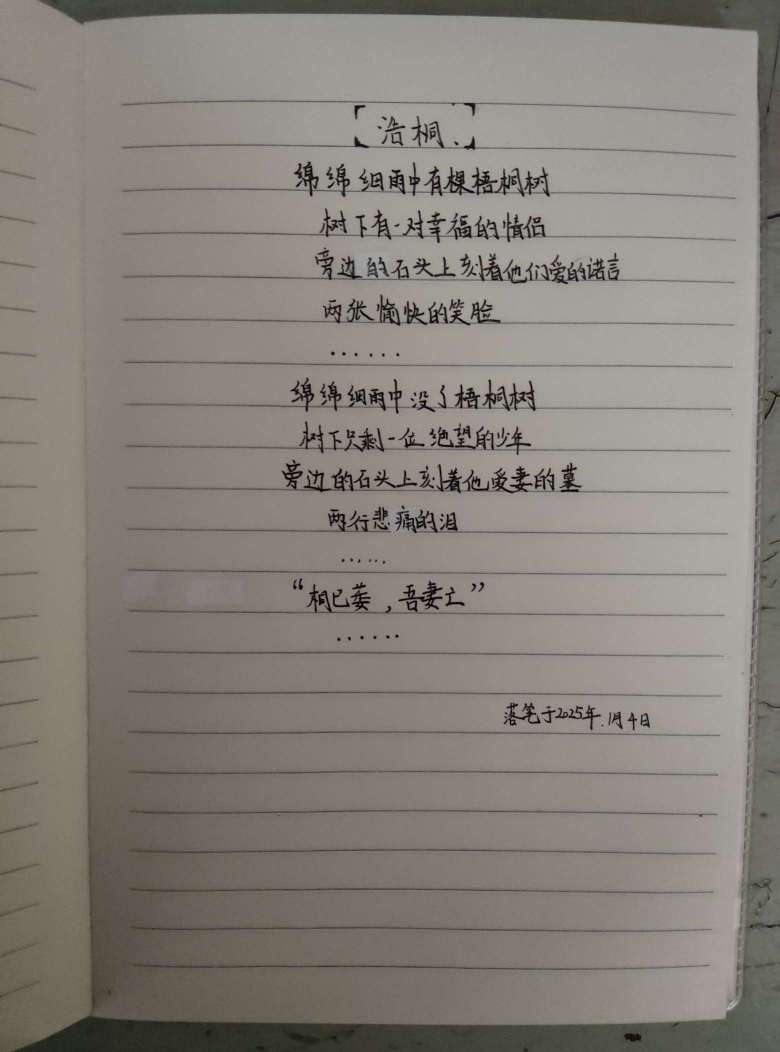 「浩桐.」
绵绵细雨中有棵梧桐树
树下有一对幸福的情侣
旁边的石头上刻着他们爱的诺言
两张愉快的笑脸
······
绵绵细雨中没了梧桐树
树下只剩一位绝望的少年
旁边的石头上刻着他爱妻的墓
两行悲痛的泪
······
“桐已萎，吾妻亡”
······
落笔于2025年.1月4日